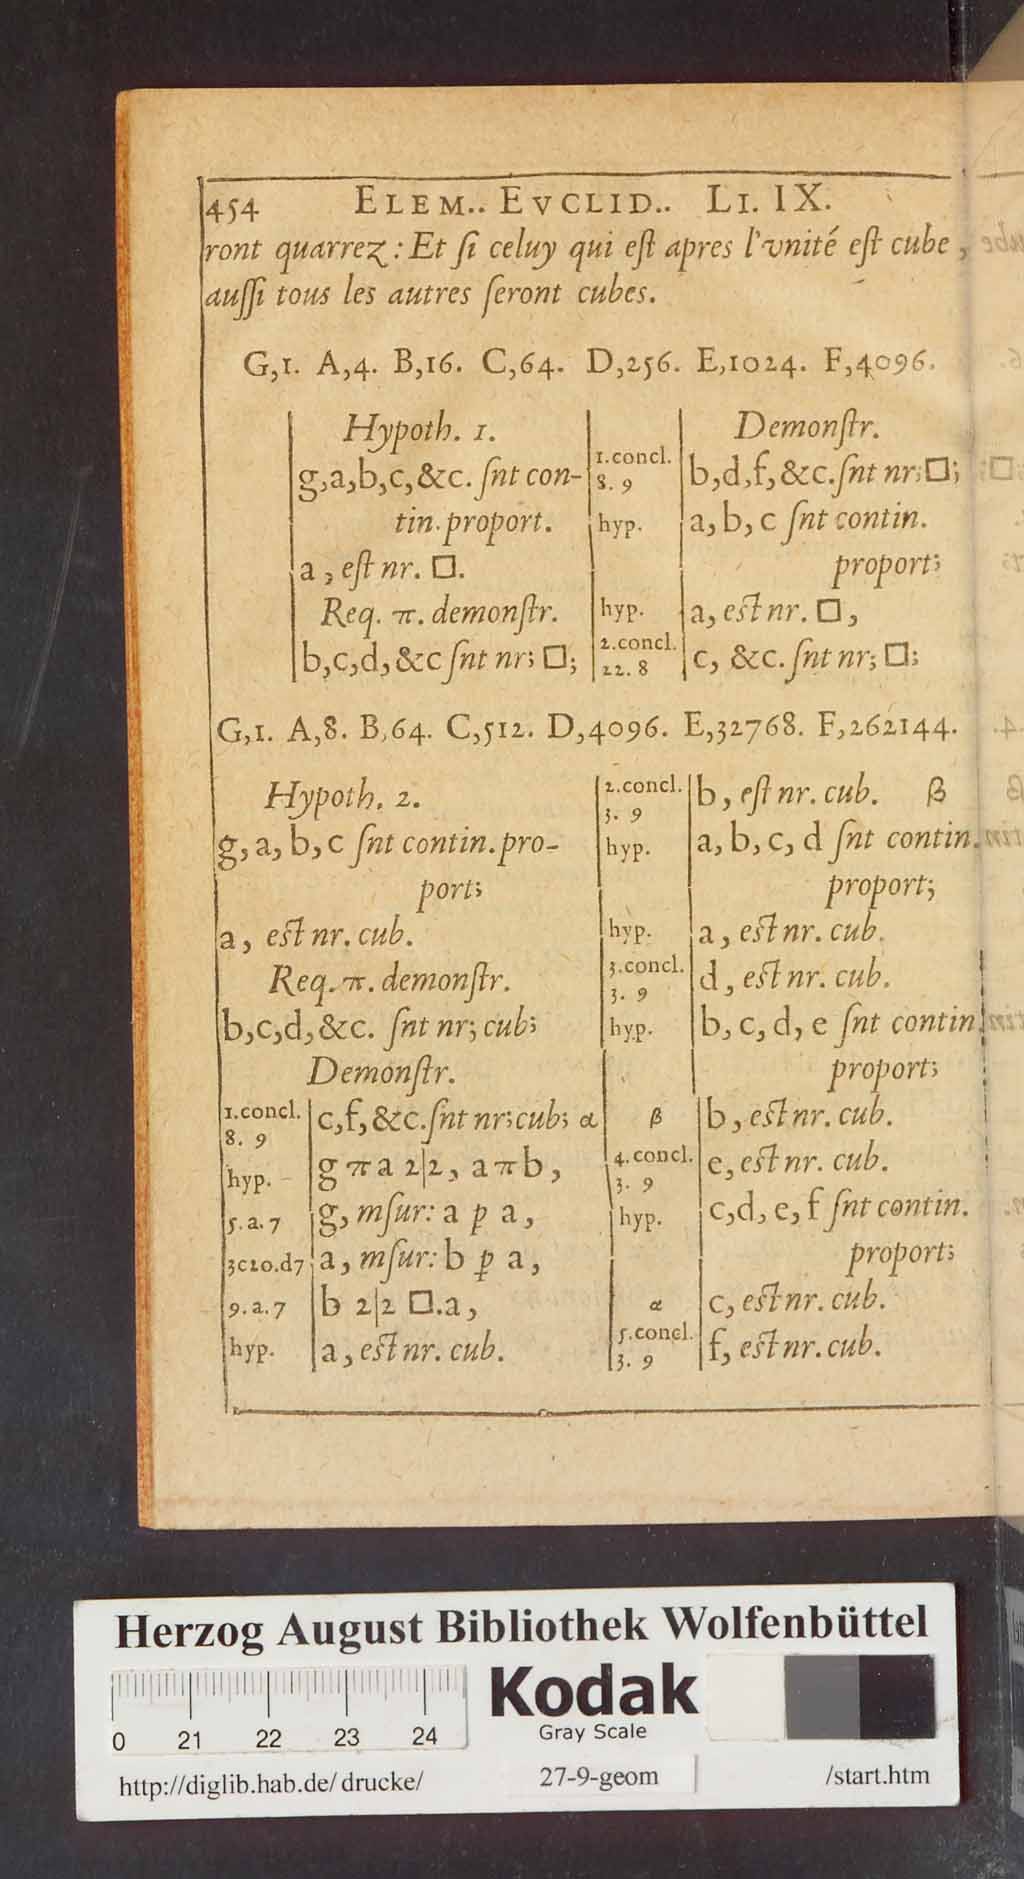 454 ELEM.. EVCLID.. LI. IX.
ront quarrez : Et ſi celuy qui eſt apres l'vnité eſt cube,
auſſi tous les autres ſeront cubes.
G,1. A,4. B,16. C,64. D,256. E,1024. F,4096.
Hypoth. 1.
g,a,b,c,&c. ſnt con-
tin. proport.
a, eſt nr. □.
Req. π. demonſtr.
b,c,d,&c ſnt nr; □;
Demonſtr.
1.concl.
8. 9
b,d,f,&c. ſnt nr; □;
hyp. a, b, c ſnt contin.
proport;
hyp. a, eſt nr. □,
2.concl.
22. 8
c, &c. ſnt nr; □;
G,1. A,8. B,64. C,512. D,4096. E,32768. F,262144.
Hypoth. 2.
g, a, b, c ſnt contin. pro-
port;
a, eſt nr. cub.
Req. π. demonſtr.
b,c,d,&c. ſnt nr; cub;
Demonſtr.
1.concl.
8. 9
c,f,&c. ſnt nr; cub; α
hyp. g π a 2|2, a π b,
5. a. 7 g, mſur: a p a,
3c20.d7 a, mſur: b p a,
9. a. 7 b 2|2 □.a,
hyp. a, eſt nr. cub.
2.concl.
3. 9
b, eſt nr. cub. β
hyp. a, b, c, d ſnt contin.
proport;
hyp. a, eſt nr. cub.
3.concl.
3. 9
d, eſt nr. cub.
hyp. b, c, d, e ſnt contin.
proport;
β b, eſt nr. cub.
4.concl.
3. 9
e, eſt nr. cub.
hyp. c,d, e, f ſnt contin.
proport;
α c, eſt nr. cub.
5.concl.
3. 9
f, eſt nr. cub.
Herzog August Bibliothek Wolfenbüttel
Kodak
Gray Scale
0 21 22 23 24
http://diglib.hab.de/drucke/ 27-9-geom /start.htm